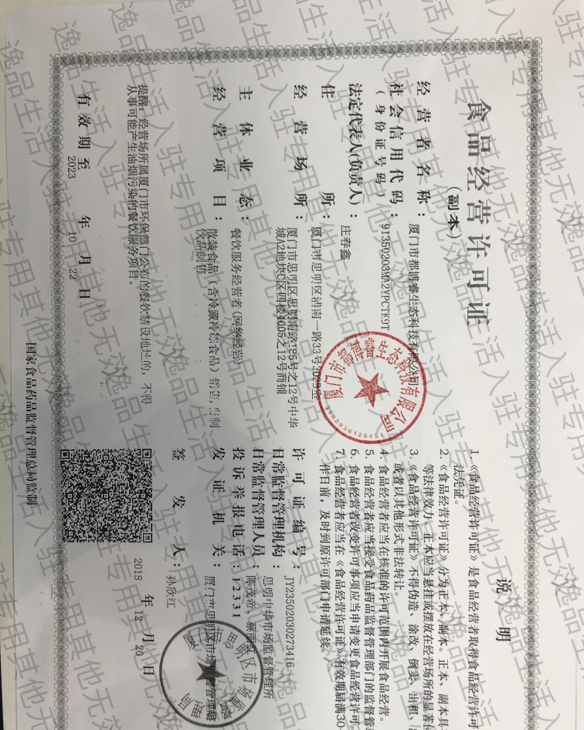 食品经营许可证
(副本)
经营者名称：厦门市都博睿生态科技有限公司
社会信用代码：
(身份证号码)
法定代表人(负责人)：庄春鑫
住所：厦门市思明区莲前一路33号
经营场所：厦门市思明区思明南路125号之12号中华
城A2地块C区四楼4005之12号商铺
主体业态：餐饮服务经营者(网络经营)
经营项目：散装食品(含冷藏冷冻食品)销售
饮品制售
提醒：经营场所属厦门市环保部门公布的餐饮禁设地址的，不得
从事可能产生油烟污染的餐饮服务项目。
有效期至 2023 年 10 月 22 日
许可证编号：JY23502030273416
日常监督管理机构：思明中华市场监督管理所
日常监督管理人员：
投诉举报电话：12331
发证机关：厦门市思明区市场监督管理局
签发人：孙欣江
2018 年 12 月 20 日
国家食品药品监督管理总局监制
说明
1.《食品经营许可证》是食品经营者取得食品经营许可
法凭证。
2.《食品经营许可证》分为正本、副本。正本、副本具
等法律效力。正本应当悬挂或摆放在经营场所的显著位
3.《食品经营许可证》不得伪造、涂改、倒卖、出租、
或者以其他形式非法转让。
4. 食品经营者应当在核准的许可范围内开展食品经营。
5. 食品经营者应当接受食品药品监督管理部门的监督管
6. 食品经营者改变许可事项应当申请变更食品经营许可
7. 食品经营者应当在《食品经营许可证》有效期届满30
作日前，及时到原许可部门申请延续
厦门市都博睿生态科技有限公司
逸品生活入驻专用其他无效